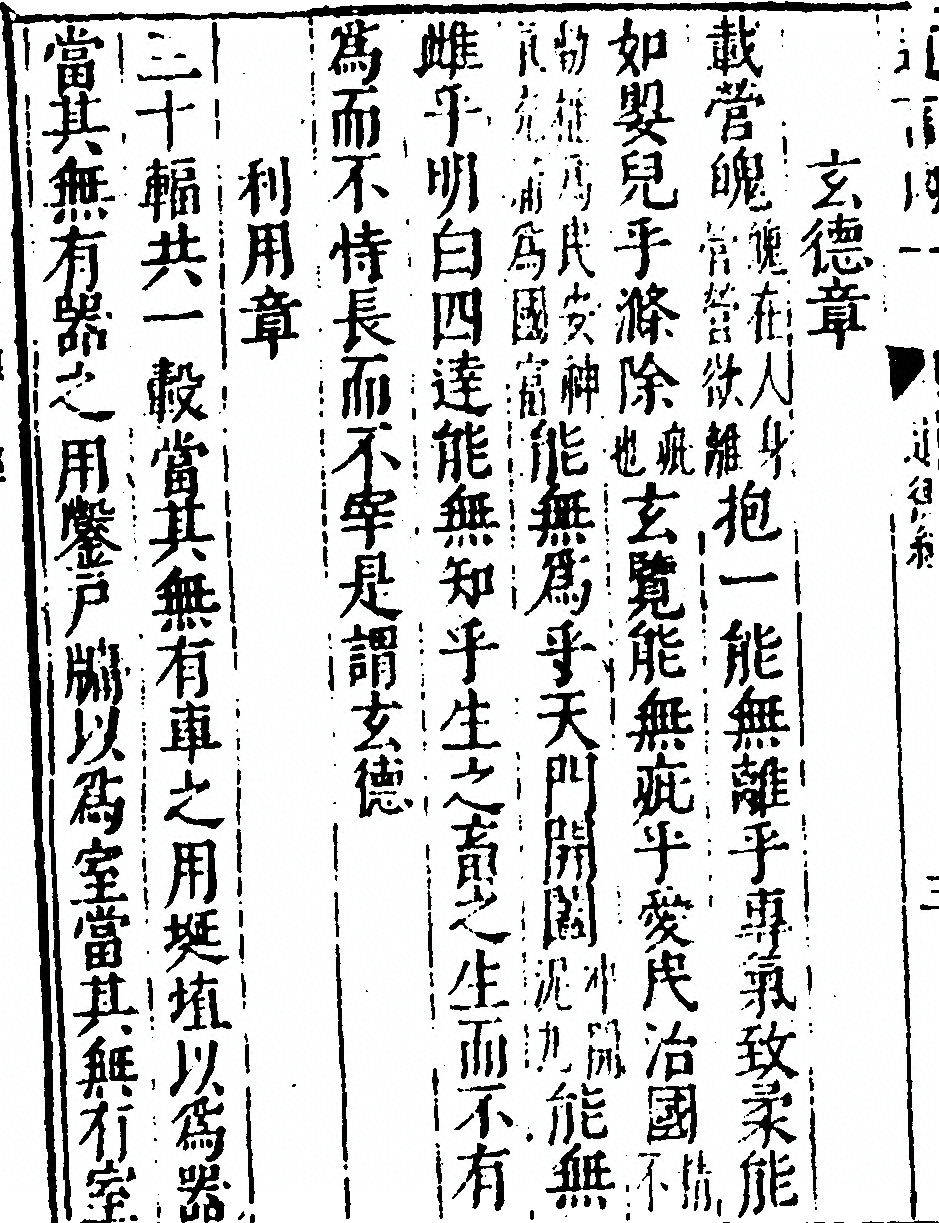 玄德章
載營魄魄在人身營欲離抱一能無離乎專氣致柔能
如嬰兒乎滌除疵也玄覽能無疵乎愛民治國不
民安神為國富能無爲乎天門開闔能無
雌乎明白四達能無知乎生之畜之生而不有
爲而不恃長而不宰是謂玄德
利用章
三十輻共一轂當其無有車之用埏埴以爲器
當其無有器之用鑿戶牖以爲室當其無有室